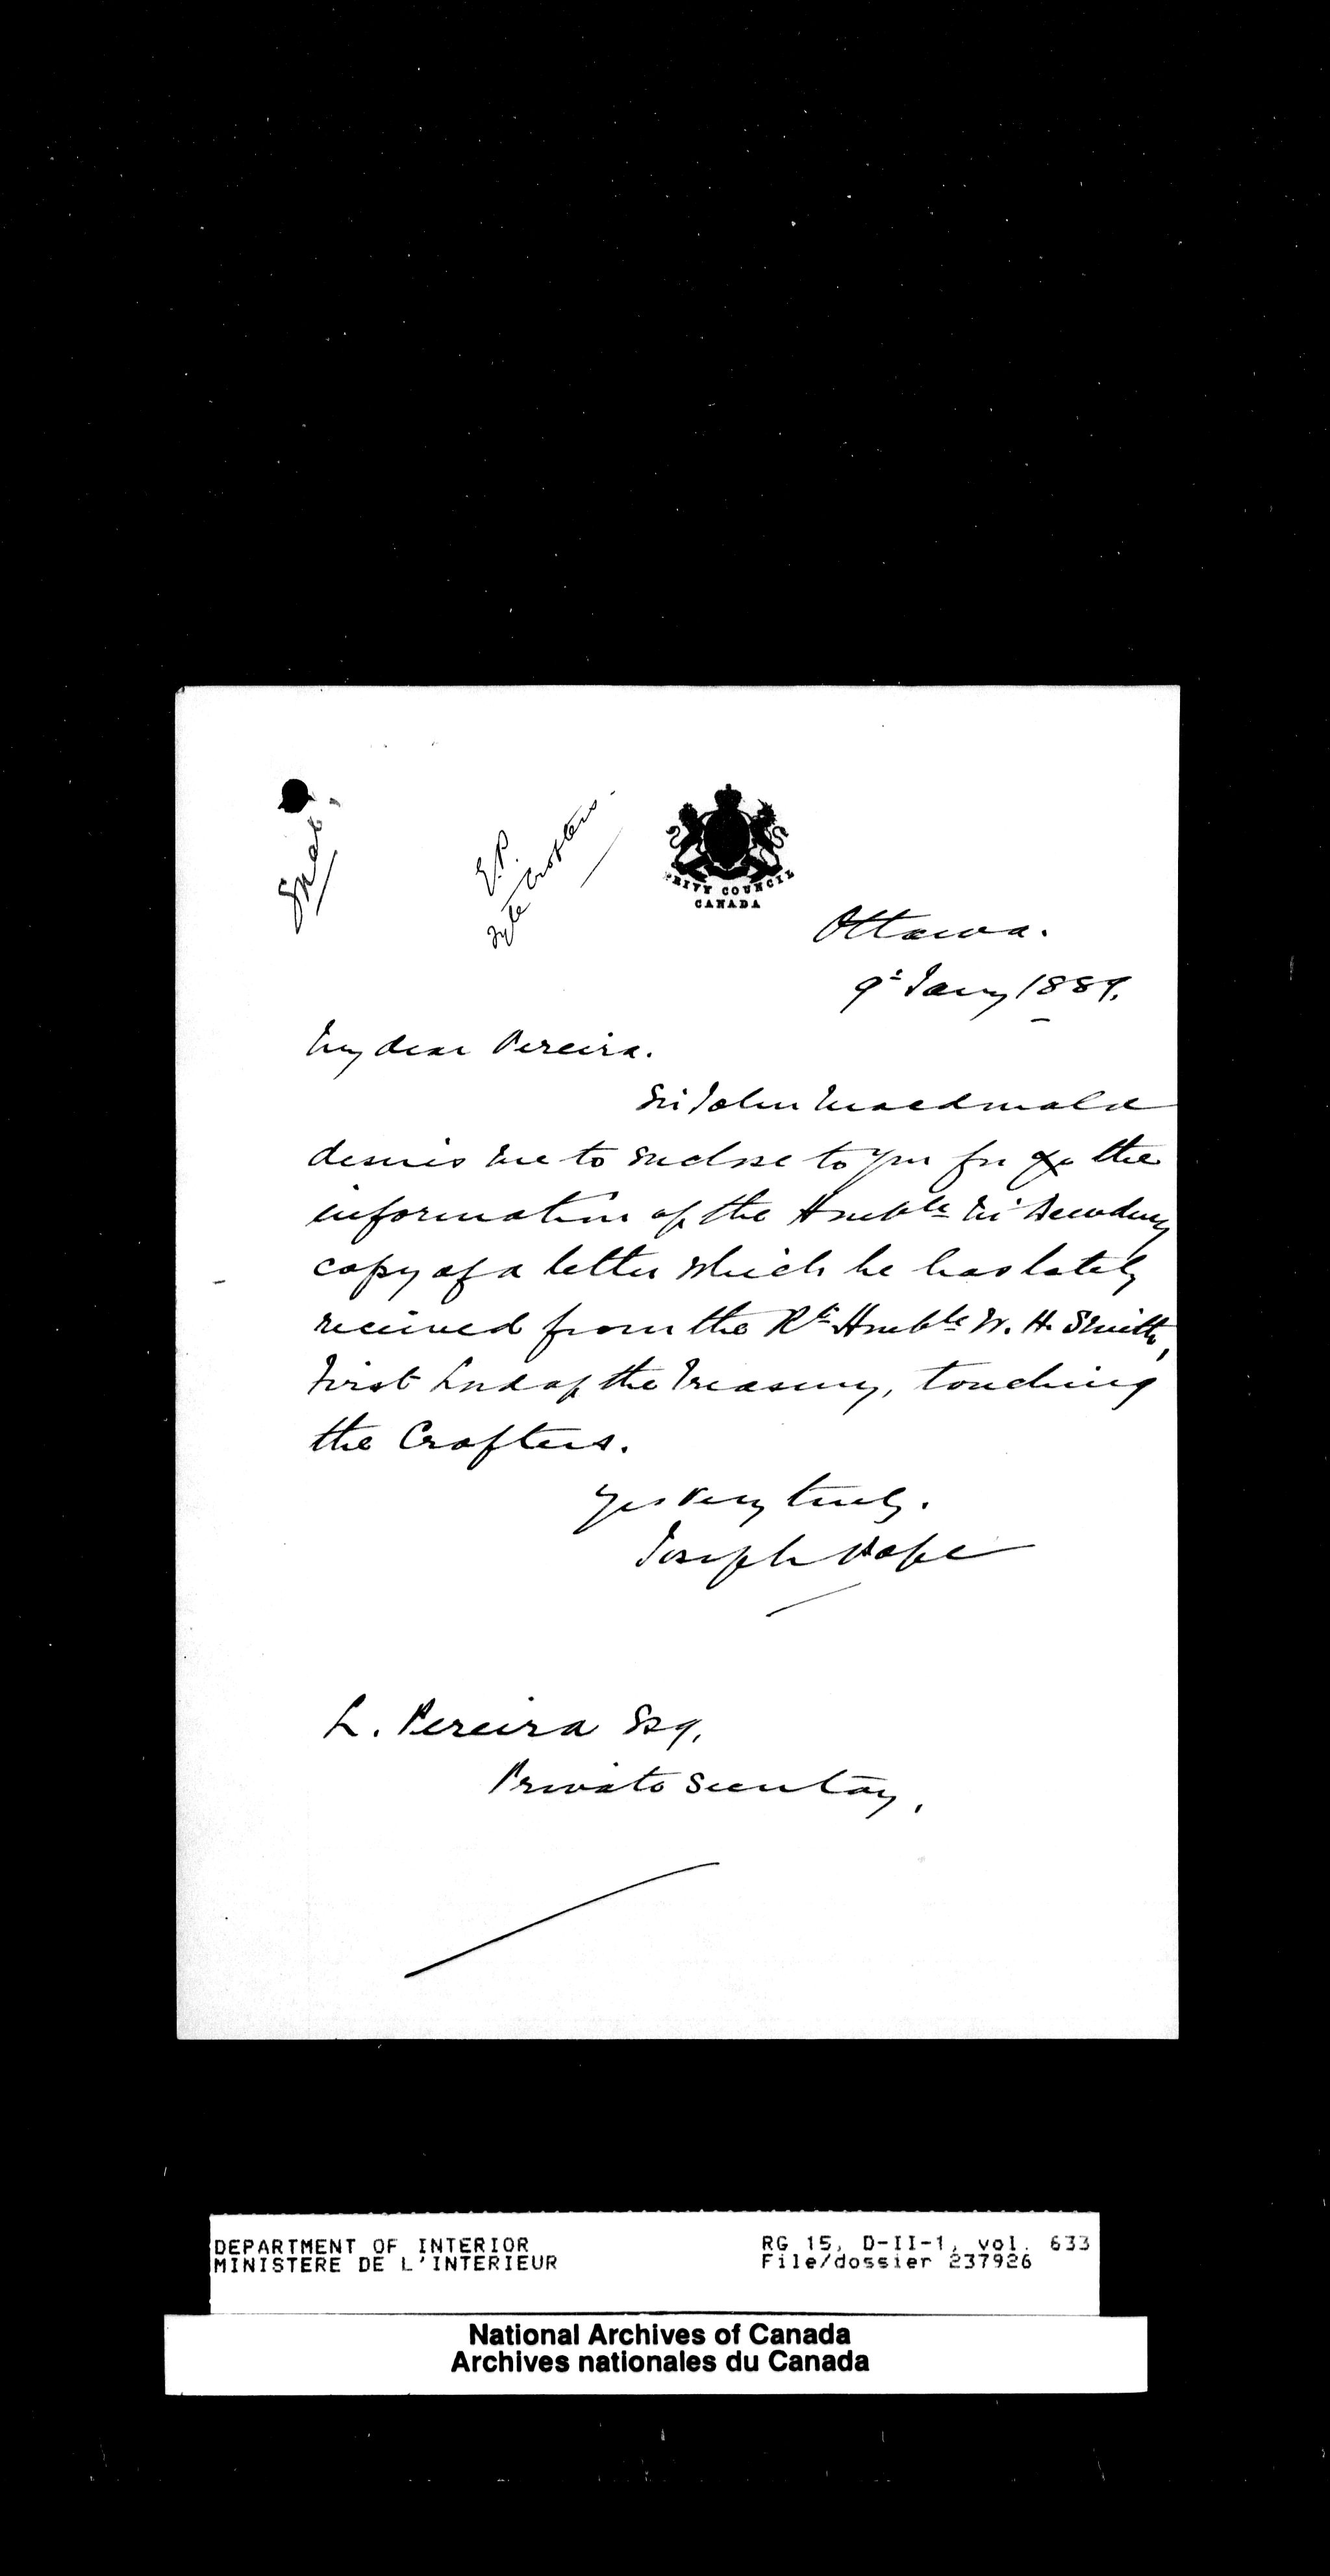 Encl.
E.P.
file Crofters.
PRIVY COUNCIL
CANADA
Ottawa.
9th Jany 1889.
My dear Pereira.
Sir John Macdonald
desires me to enclose to you for the
information of the Honble Mr Dewdney
copy of a letter which he has lately
received from the Rt Honble W. H. Smith,
First Lord of the Treasury, touching
the Crofters.
Yrs very truly.
Joseph Pope
L. Pereira Esq.
Private Secretary.
DEPARTMENT OF INTERIOR RG 15, D-II-1, vol. 633
MINISTERE DE L'INTERIEUR File/dossier 237926
National Archives of Canada
Archives nationales du Canada